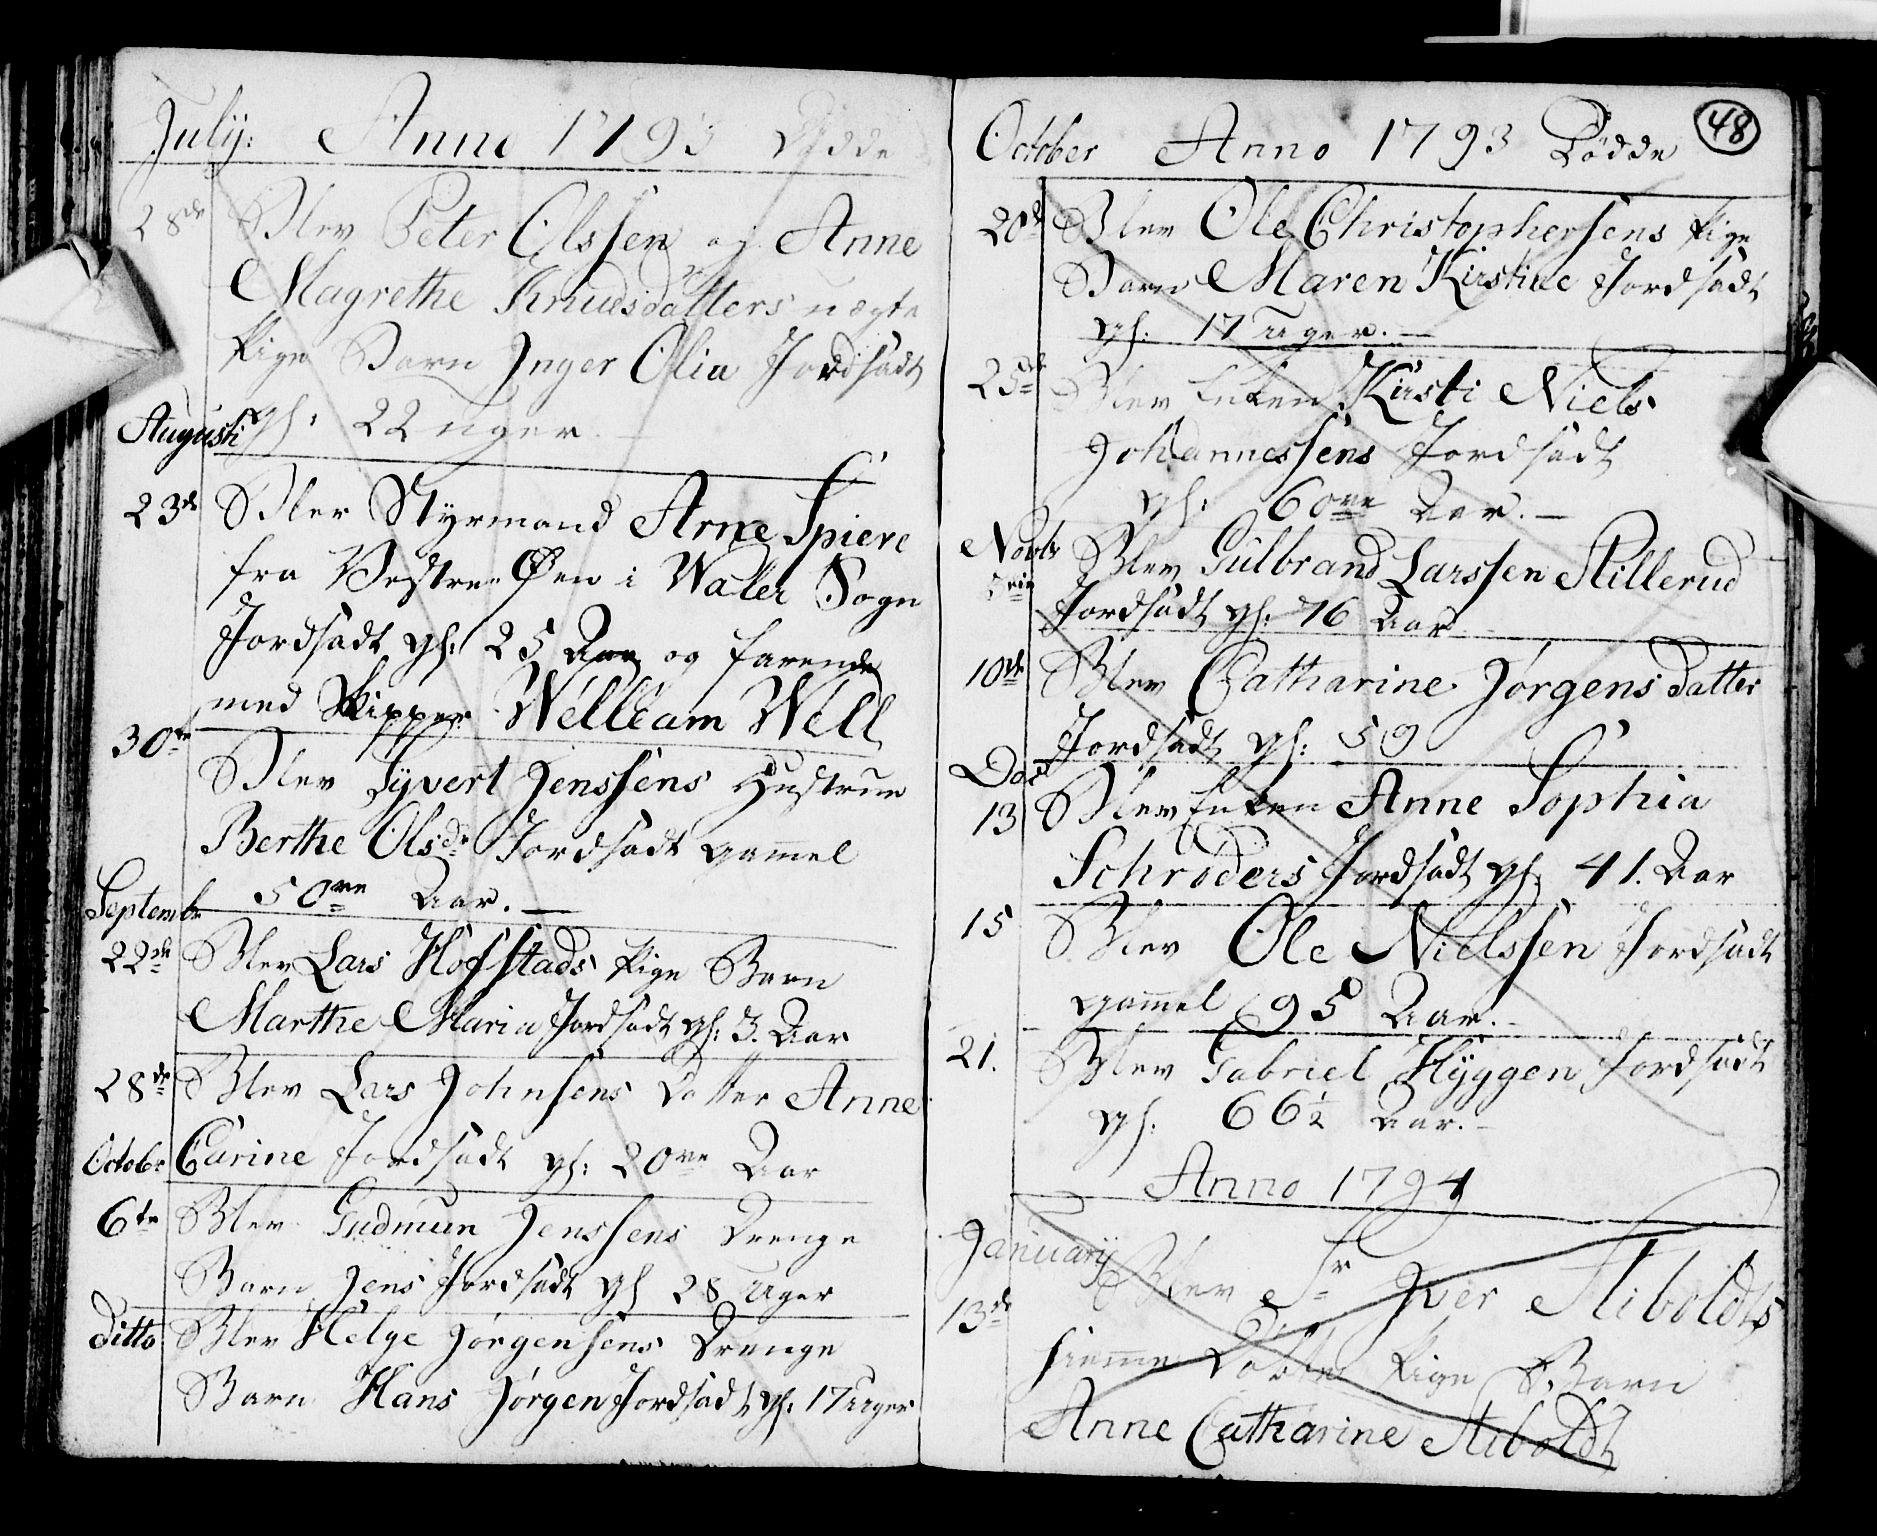 July: Anno 1793 Dødde
28de Blev Peter Olssen og Anne
Magrethe Knudsdatters uægte
Pige Barn Inger Olia Jordsadt
gl: 22 uger.
Augusti
23de Blev Styrmand Arne Spiere
fra Vestre Øen i Waler Sogn
Jordsadt gl: 25 Aar og farende
med Skipper Welleam Well
30te
Blev Syvert Jenssens Hustrue
Berthe Olsdr Jordsadt gammel
50ve Aar. —
Septembr
22de Blev Lars Hofstads Pige Barn
Marthe Maria Jordsadt gl: 3. Aar
28de Blev Lars Johnsens Datter Anne
Carine Jordsadt gl: 20ve Aar
Octobr
6te Blev Gudmun Jenssens Drenge
Barn Jens Jordsadt gl 28 Uger
Ditto Blev Helge Jørgensens Drenge
Barn Hans Jørgen Jordsadt gl: 17 uger
October Anno 1793 Dødde 48
20de Blev Ole Christophersens Pige
Barn Maren Kirstine Jordsadt
gl: 17 Uger. —
25de Blev Enken Kirsti Niels
Johannessens Jordsadt
gl: 60ve Aar. —
Novbr Blev Gulbrand Larssen Stillerud
Jordsadt gl: 76 Aar
10de Blev Catharine Jørgensdatter
Jordsadt gl: 59
Des
13 Blev Enken Anne Sophia
Schrøders Jordsadt gl: 41. Aar
15 Blev Ole Nielssen Jordsadt
gammel 95 Aar.
21. Blev Gabriel Hÿggen Jordsadt
gl: 66½ Aar.
Anno 1794
January Blev Sr Iver Stiboldts
13de
hiemme Døbte Pige Barn
Anne Catharine Stiboldt